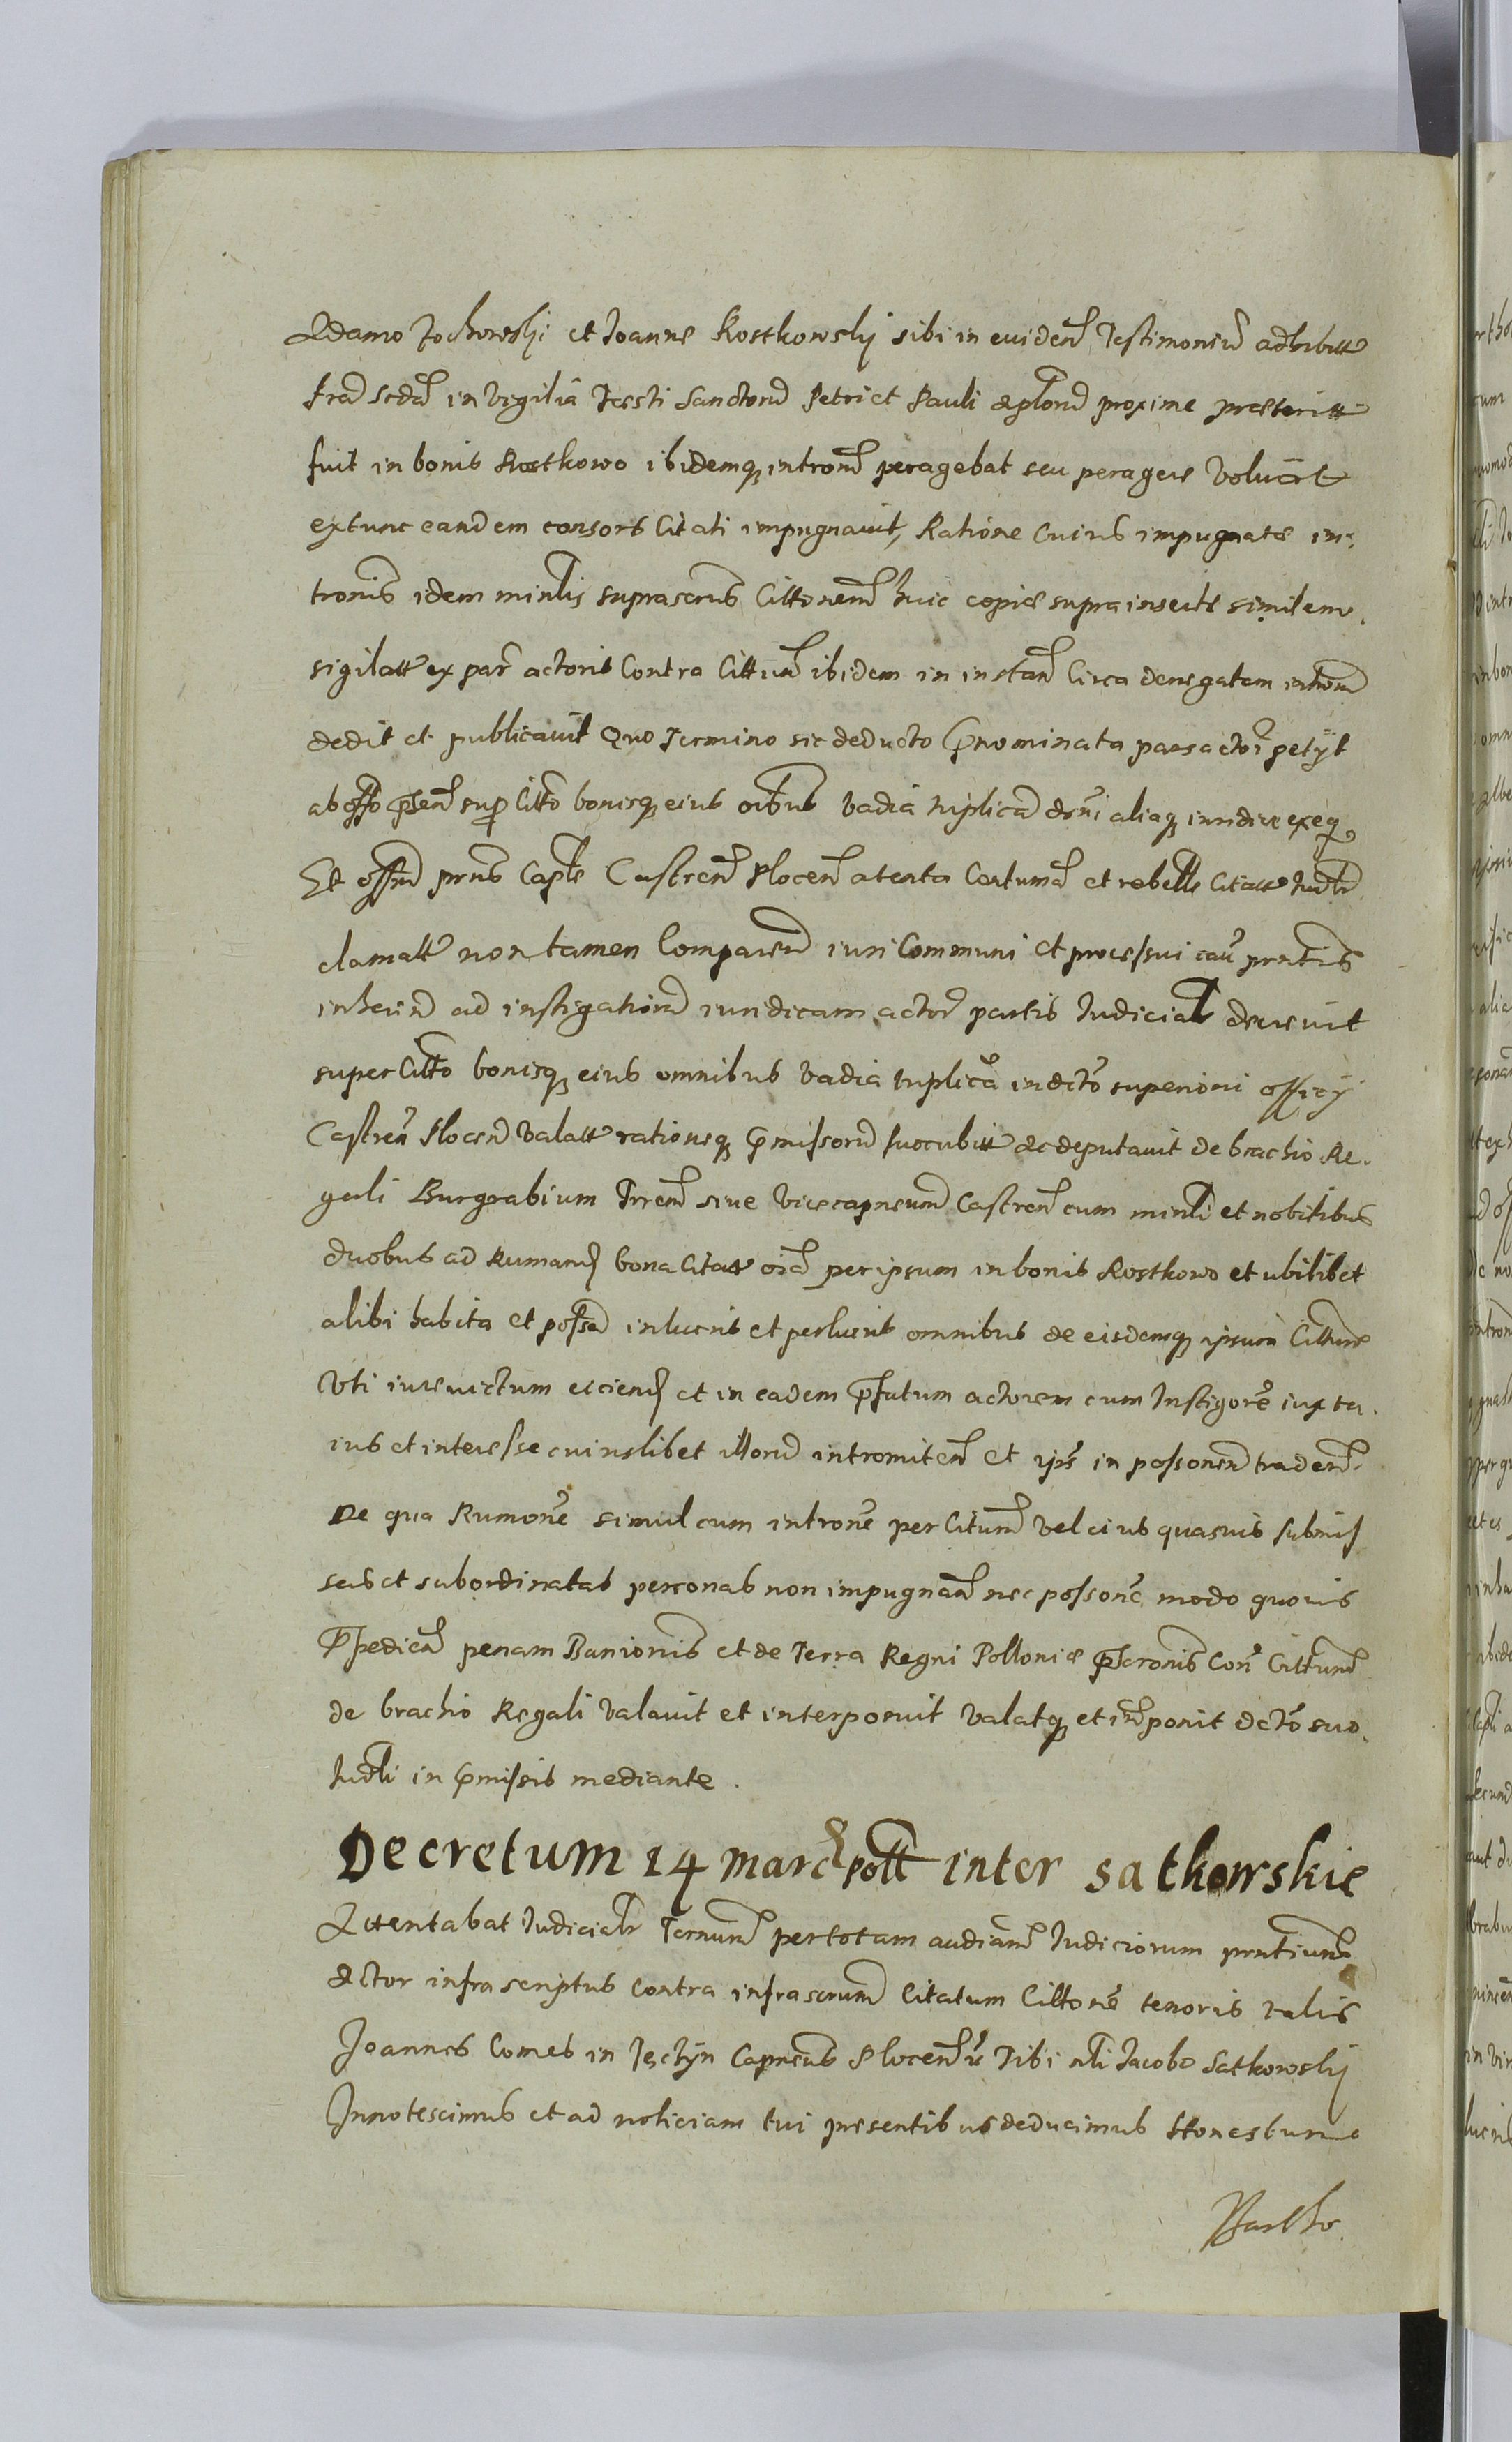 Adamo Jochowskj et Joanne Rostkowskj sibi in euiden Testimoniu adhibitt
fria scda in vigilia Festi Sanctoru Petri et Pauli Aploru proxime preteritt
fuit in bonis Rostkowo ibidemq introm peragebat seu peragere Voluerit
extunc eandem consors Citati impugnauit, Ratione Cuius impugnatæ in:
tromis idem minlis suprascrus Cittonem huic copiæ supra insertæ similem.
sigilatt ex par actoris Contra Cittum ibidem in instan Circa denegatam introm
dedit et publicauit Quo Termino sic deducto Pnominata pars actor petijt
ab offo psen sup Citto bonisq eius oibus vadia triplica dcni aliaq iuridice exeq
Et offm prns Caple Castren Plocen atenta Contuma et rebelle Citatt Iudlr
clamatt non tamen Comparen iuri Communi et processui cau prntis
inheren ad instigationem iuridicam actor partis Iudicialr decreuit
super Citto bonisq eius omnibus vadia triplica indicto superiori officij
Castren Plocen valatt rationeq Pmissoru succubitt ac deputauit de brachio Re.
gali Burgrabium Trren siue vicecapneum Castren cum minli et nobilibus
duobus ad Rumand bona Citatt oia per ipsum in bonis Rostkowo et ubilibet
alibi habita et possa inlucris et perlucris omnibus de eisdemq ipsum Cittum
Vti iure victum eiciend et in eadem Pfatum actorem cum Instigore iuxta.
ius et interesse cuiuslibet illoru intromiten et ips in possonem traden.
De qua Rumone simul cum introne per Citum vel eius quasuis submis
sas et subordinatas personas non impugnan nec possone modo quouis
Ppedien penam Banionis et de Terra Regni Polloniæ Pscronis Con Cittum
de brachio Regali valauit et interposuit valatq et inponit dcto suo.
Iudli in Pmissis mediante.
Decretum 14 marc pott inter satkowskie
Attentabat Iudicialr Ternum per totam audiam Iudiciorum prntium
Actor infra scriptus contra infrascrum Citatum Cittone tenoris talis
Joannes Comes in Tęczyn Capneus Plocen et Tibi nli Iacobo Satkowskj
Innotescimus et ad noticiam tui presentibus deducimus Honestum
Bartho.